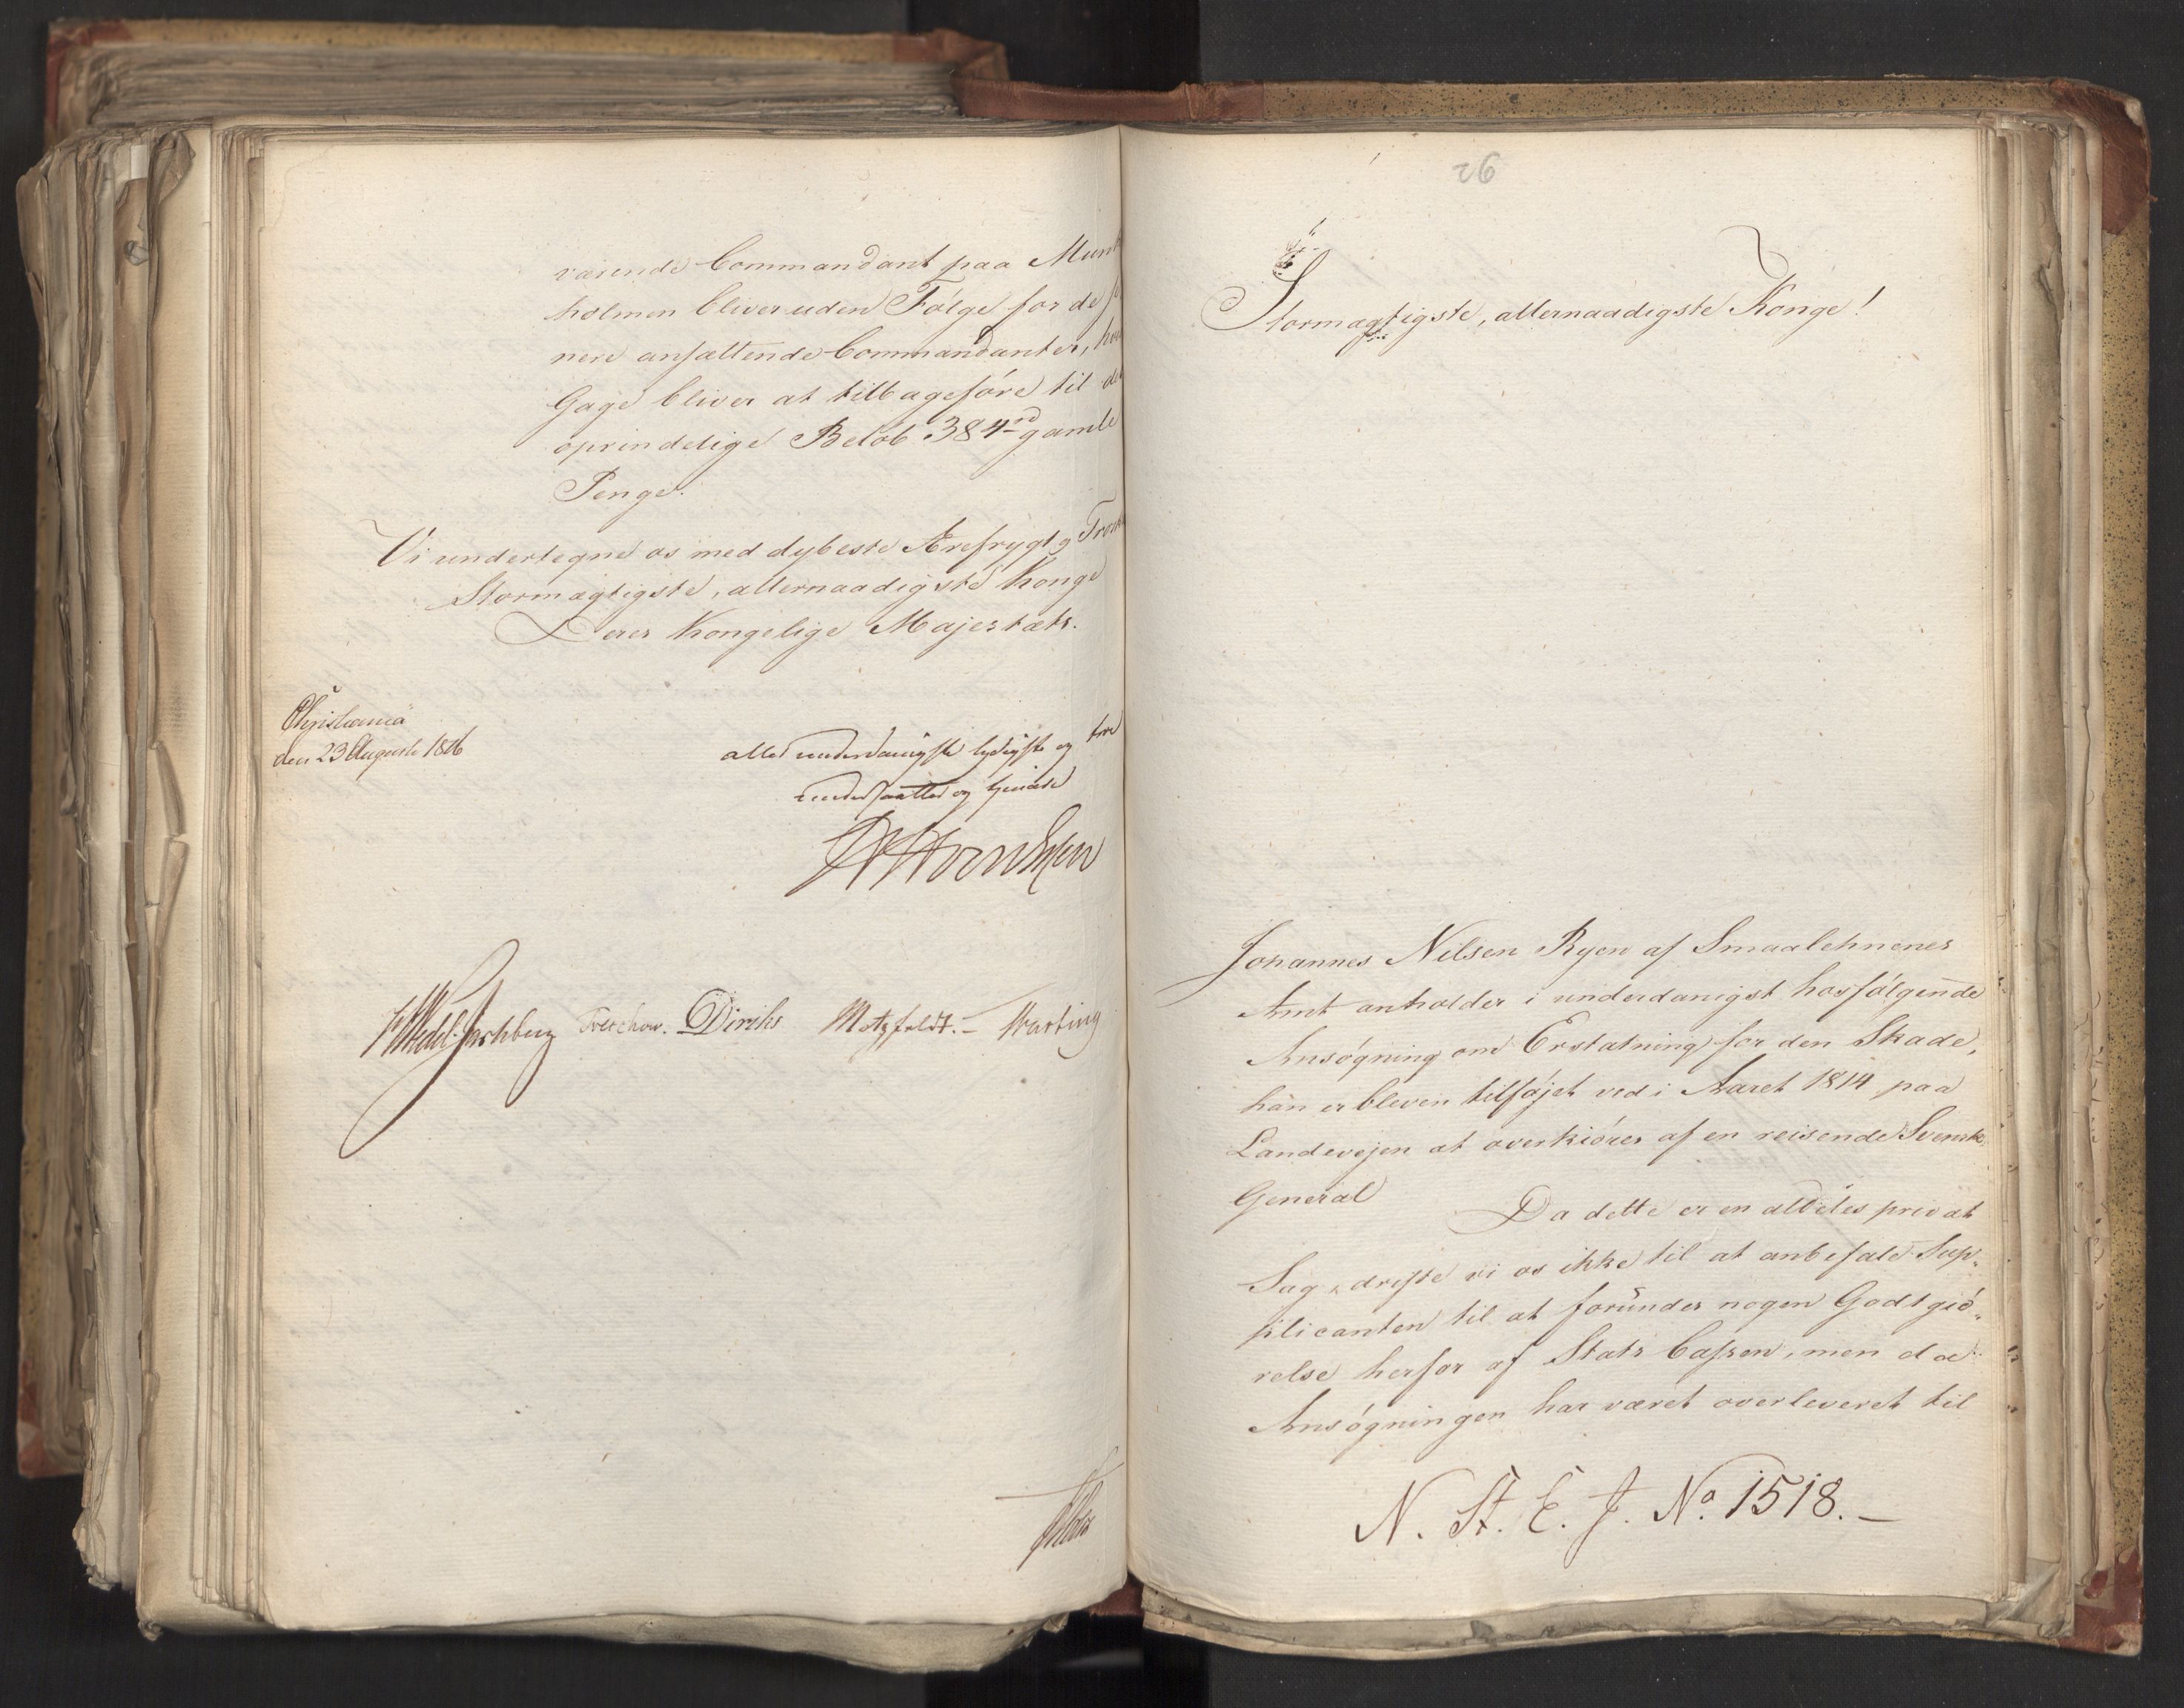 værende Commandant paa Munk
holmen bliver uden Følge for de
nere ansættende Commandanter,
Gage bliver at tilbageføre til de
oprindelige Beløb 384 rd gamle
Penge.
Vi undertegne os med dybeste Ærefrygt og
Stormægtigste, allernaadigste Konge
Deres Kongelige Majestæts.
Christiania
den 23 August 1816
allerunderdanigste lydigste og troe
undersaatter og tjenere
Wedel-Jarlsberg Treschow. Diriks Motzfeldt. —
26
Stormægtigste, allernaadigste Konge!
Johannes Nilsen Ryen af Smaalehnenes
Amt anholder i underdanigst hosfølgende
Ansøgning om Erstatning for den Skade,
han er bleven tilføjet ved i Aaret 1814 paa
Landevejen at overkiøres af en reisende Svensk
General
Da dette er en aldeles privat
Sag, drifte vi os ikke til at anbefale Sup-
plicanten til at forundes nogen Godtgiø-
relse herfor af Stats Cassen, men da
Ansøgningen har været overleveret til
N. St. E. J. No. 1518. —